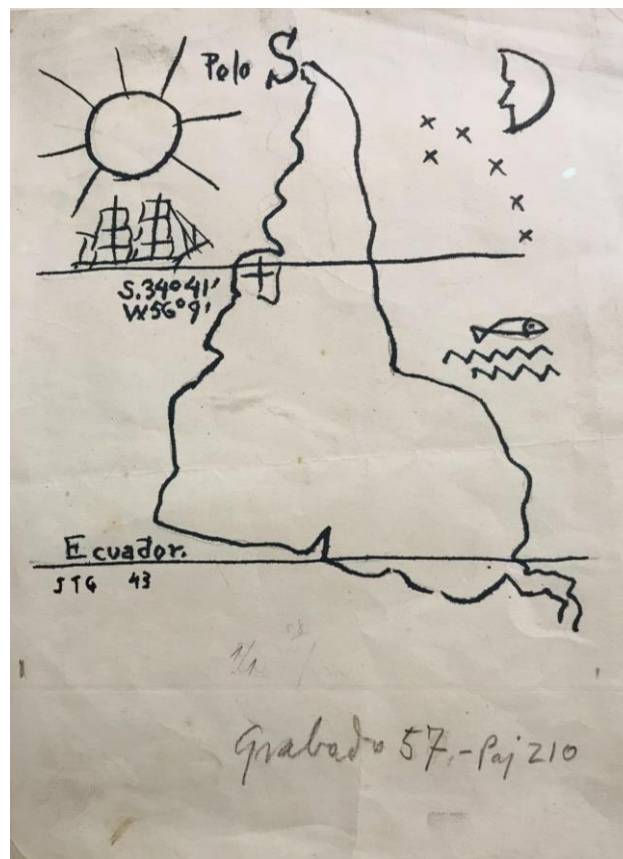 Polo S
S. 34º 41'
W 56º 9'
Ecuador.
JTG 43
Grabado 57.-Paj 210